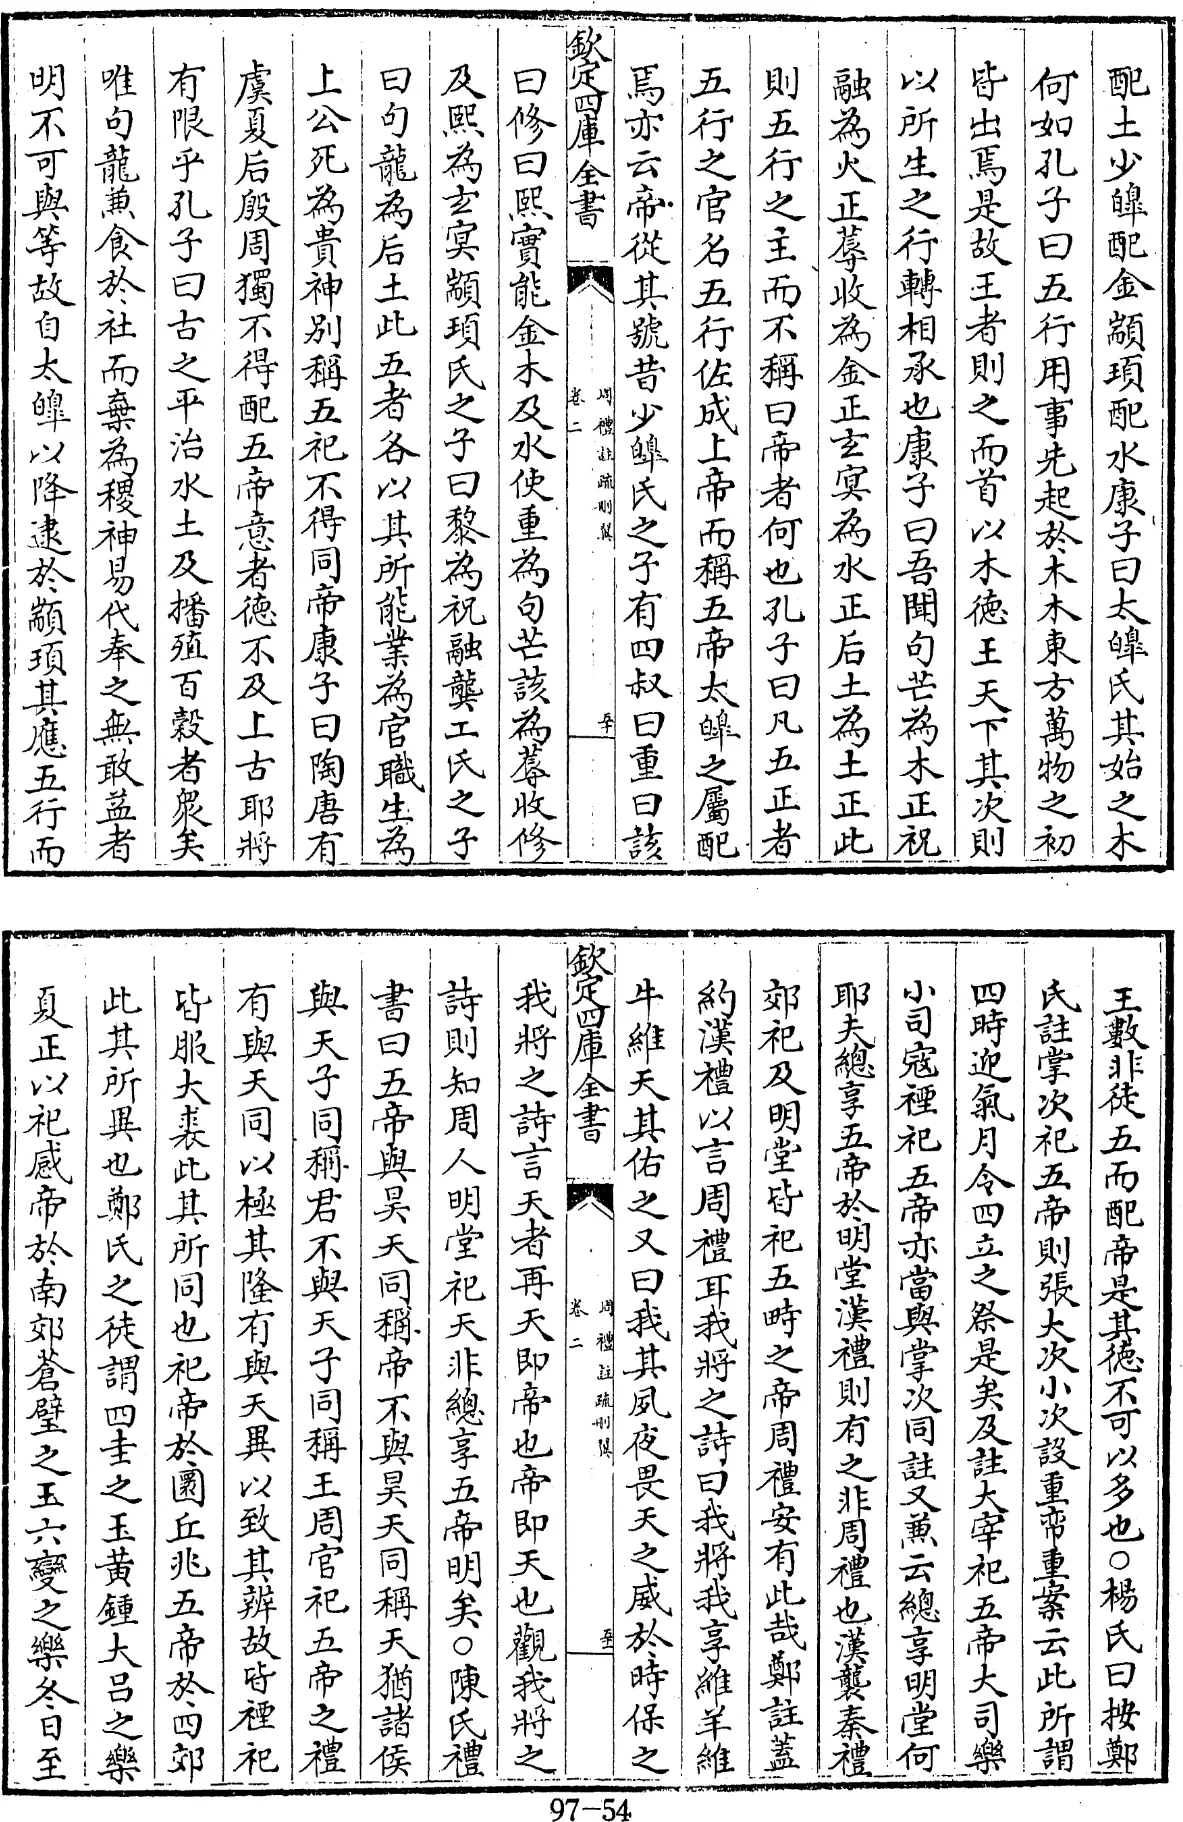 配土少皥配金顓頊配水康子曰太皥氏其始之木
何如孔子曰五行用事先起於木木東方萬物之初
皆出焉是故王者則之而首以木德王天下其次則
以所生之行轉相承也康子曰吾聞句芒為木正祝
融為火正蓐收為金正玄冥為水正后土為土正此
則五行之主而不稱曰帝者何也孔子曰凡五正者
五行之官名五行佐成上帝而稱五帝太皥之屬配
焉亦云帝從其號昔少皥氏之子有四叔曰重曰該
欽定四庫全書
周禮註疏刪翼
卷二
五十
曰修曰熙實能金木及水使重為句芒該為蓐收修
及熙為玄冥顓頊氏之子曰黎為祝融龔工氏之子
曰句龍為后土此五者各以其所能業為官職生為
上公死為貴神別稱五祀不得同帝康子曰陶唐有
虞夏后殷周獨不得配五帝意者德不及上古耶將
有限乎孔子曰古之平治水土及播殖百穀者衆矣
唯句龍兼食於社而棄為稷神易代奉之無敢益者
明不可與等故自太皥以降逮於顓頊其應五行而
王數非徒五而配帝是其德不可以多也○楊氏曰按鄭
氏註掌次祀五帝則張大次小次設重帟重案云此所謂
四時迎氣月令四立之祭是矣及註大宰祀五帝大司樂
小司寇禋祀五帝亦當與掌次同註又兼云總享明堂何
耶夫總享五帝於明堂漢禮則有之非周禮也漢襲秦禮
郊祀及明堂皆祀五畤之帝周禮安有此哉鄭註蓋
約漢禮以言周禮耳我將之詩曰我將我享維羊維
牛維天其佑之又曰我其夙夜畏天之威於時保之
欽定四庫全書
周禮註疏刪翼
卷二
我將之詩言天者再天即帝也帝即天也觀我將之
詩則知周人明堂祀天非總享五帝明矣○陳氏禮
書曰五帝與昊天同稱帝不與昊天同稱天猶諸侯
與天子同稱君不與天子同稱王周官祀五帝之禮
有與天同以極其隆有與天異以致其辨故皆禋祀
皆服大裘此其所同也祀帝於圜丘兆五帝於四郊
此其所異也鄭氏之徒謂四圭之玉黃鍾大呂之樂
夏正以祀感帝於南郊蒼璧之玉六變之樂冬日至
97-54